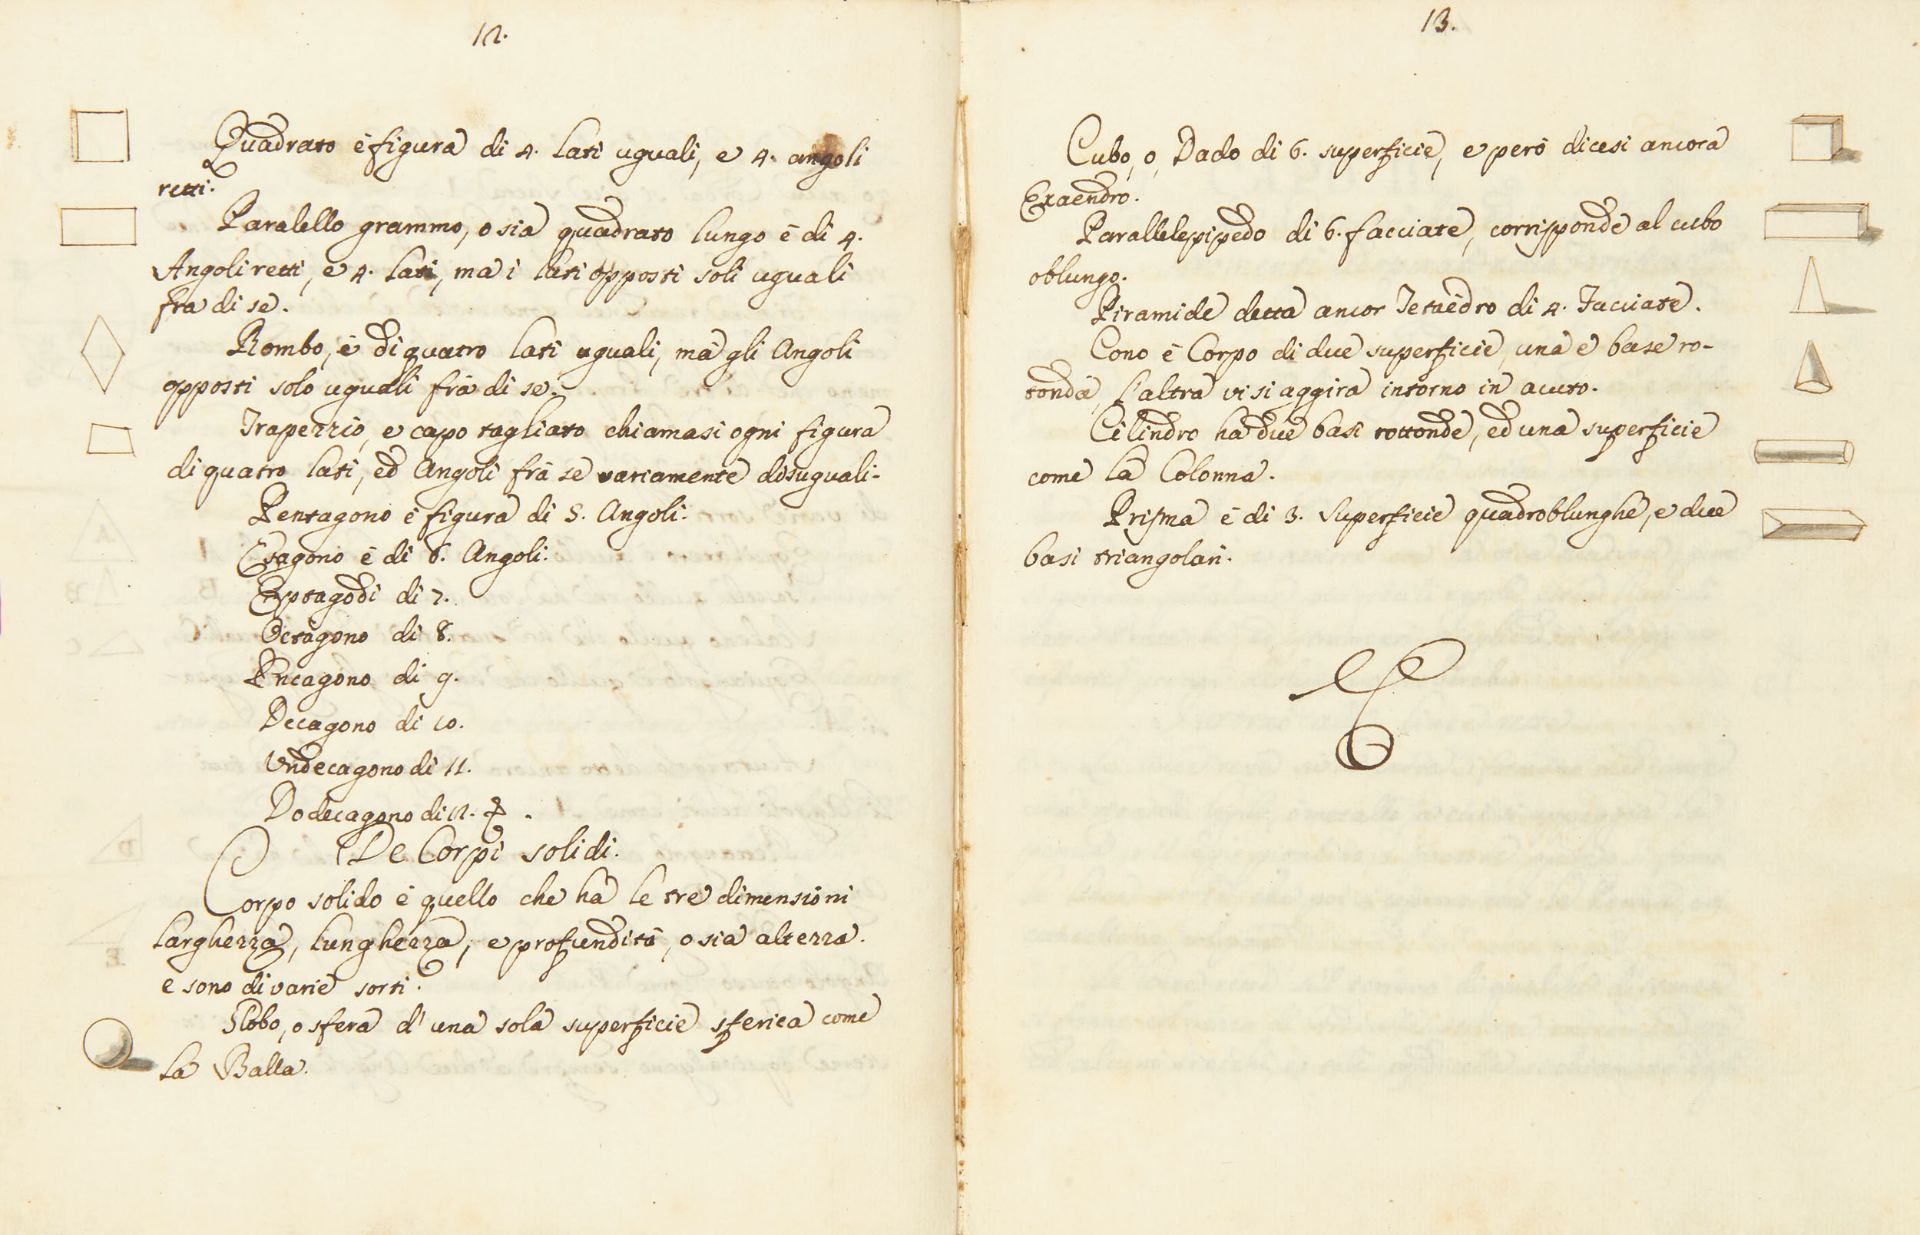 12.
Quadrato è figura di 4. lati uguali, e 4. angoli
retti.
Paralello grammo, o sia quadrato lungo è di 4.
Angoli retti, e 4. lati, ma i lati opposti soli uguali
fra di se.
Rombo, è di quatro lati uguali, mà gli Angoli
opposti solo uguali frà di se.
Trapezzio, e capo tagliato chiamasi ogni figura
di quatro lati, ed Angoli frà se variamente disuguali.
Pentagono è figura di 5. Angoli.
Esagono è di 6. Angoli.
Eptagodi di 7.
Octagono di 8.
Encagono di 9.
Decagono di 10.
Undecagono di 11.
Dodecagono di 12.
De Corpi solidi.
Corpo solido è quello che hà le tre dimensioni
larghezza, lunghezza, e profundità, o sia altezza.
e sono di varie sorti.
Globo, o sfera d'una sola superficie sferica come
la Balla.
13.
Cubo, o, Dado di 6. superficie, e però dicesi ancora
Exaendro.
Parallelepipedo di 6. facciate, corrisponde al cubo
oblungo.
Piramide detta ancor Tetaedro di 4. Facciate.
Cono è Corpo di due superficie, una è base ro-
tonda, l'altra vi si aggira intorno in acuto.
Cilindro ha due basi rottonde, ed una superficie
come la Colonna.
Prisma è di 3. Superficie quadroblunghe, e due
basi triangolari.